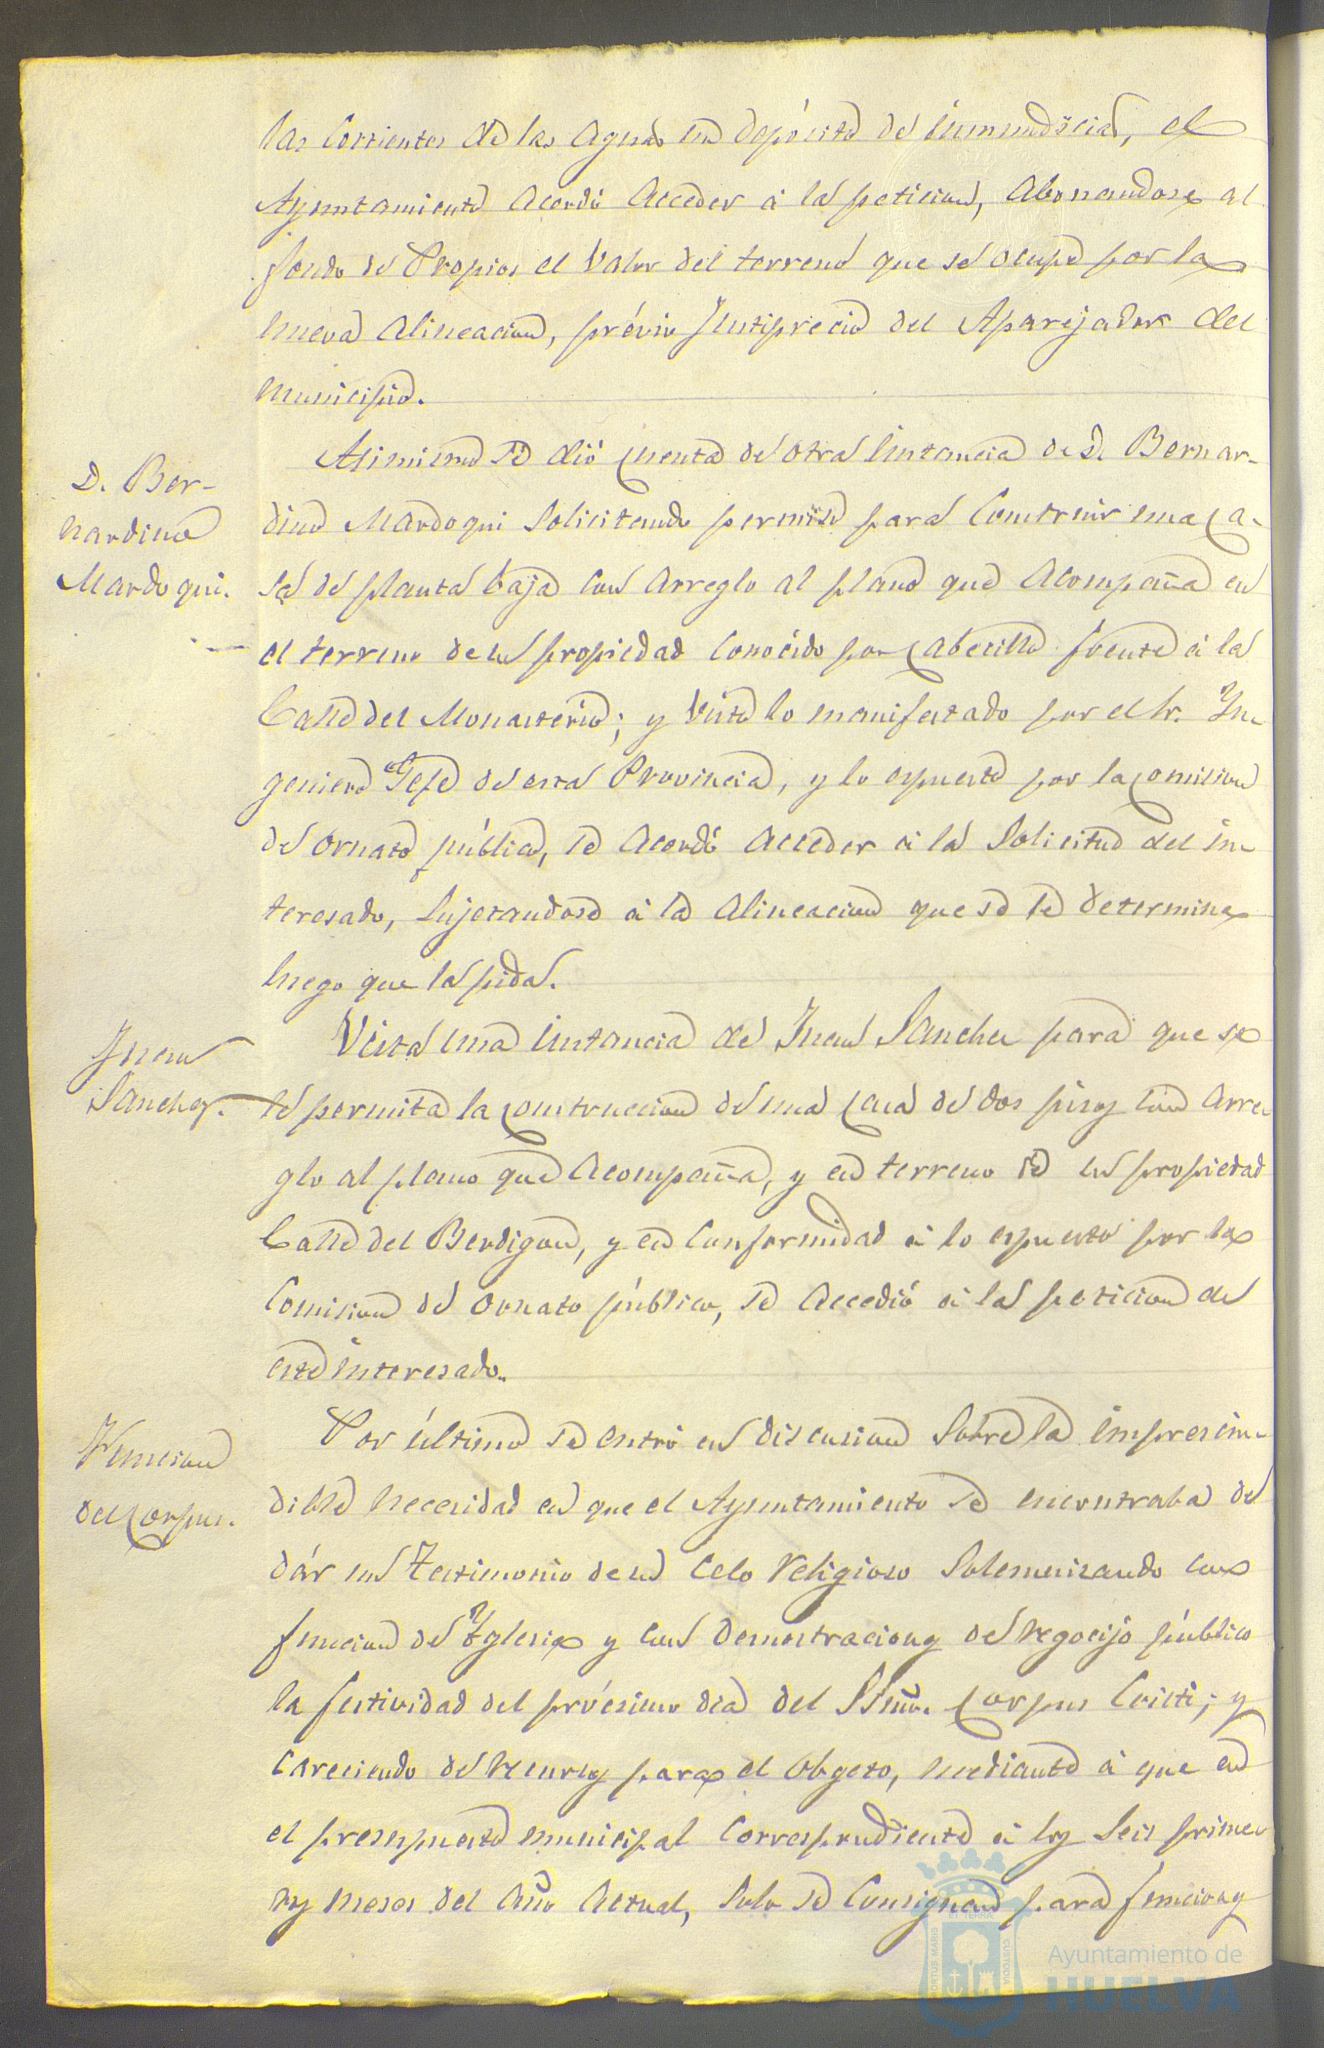 las corrientes de las aguas un depósito de inmundicias, el
Ayuntamiento acordó acceder á la peticion, abonandose al
fondo de Propios el valor del terreno que se ocupe por la
nueva alineacion, prévio justiprecio del Aparejador del
municipio.
D. Ber-
nardino
Mardoqui.
Asimismo se dió cuenta de otra instancia de D. Bernar-
dino Mardoqui solicitando permiso para construir una ca-
sa de planta baja con arreglo al plano que acompaña en
el terreno de su propiedad conocido por Cabecillo frente á la
Calle del Monasterio; y visto lo manifestado por el Sr. Yn-
geniero Gefe de esta Provincia, y lo espuesto por la comision
de ornato público, se acordó acceder á la solicitud del in-
teresado, sujetandose á la alineacion que se le determine
luego que la pida.
Juan
Sanchez.
Vista una instancia de Juan Sanchez para que se
le permita la construccion de una casa de dos pisos con arre-
glo al plano que acompaña, y en terreno de su propiedad
Calle del Berdigon, y en conformidad á lo espuesto por la
Comision de ornato público, se accedió á la peticion de
este interesado.
Funcion
del Corpus.
Por último se entró en discusion sobre la imprescin-
dible necesidad en que el Ayuntamiento se encontraba de
dár un testimonio de su celo religioso solemnizando con
funcion de Yglesia y con demostraciones de regocijo público
la festividad del procsimo dia del SSmo. Corpus Cristi; y
careciendo de recursos para el obgeto, mediante á que en
el presupuesto municipal correspondiente á los seis prime-
ros meses del año actual, solo se consignan para funciones
Ayuntamiento de
HUELVA